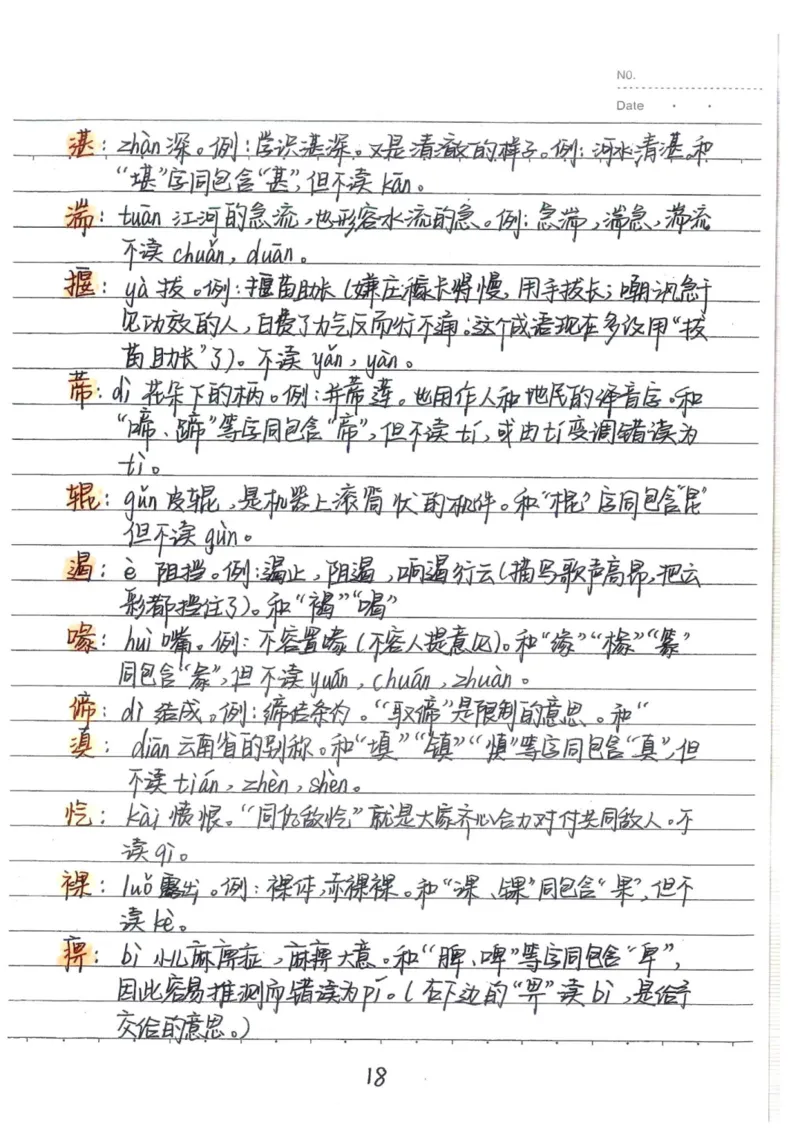 NO.
Date
湛：zhàn 深。例：学识湛深。又是清澈的样子。例：河水清湛。和
“堪”字同包含“甚”，但不读 kān。
湍：tuān 江河的急流，也形容水流的急。例：急湍，湍急，湍流
不读 chuǎn，duān。
揠：yà 拔。例：揠苗助长（嫌庄稼长得慢，用手拔长；嘲讽急于
见功效的人，白费了力气反而行不通；这个成语现在多设用“拔
苗助长”了）。不读 yǎn，yàn。
蒂：dì 花朵下的柄。例：并蒂莲。也用作人和地民的译音字。和
“啼、蹄”等字同包含“帝”，但不读 tí，或由 tí 变调错读为
tì。
辊：gǔn 皮辊，是机器上滚筒状的机件。和“棍”字同包含“昆”
但不读 gùn。
遏：è 阻挡。例：遏止，阻遏，响遏行云（描写歌声高昂，把云
彩都挡住了）。和“褐”“喝”
喙：huì 嘴。例：不容置喙（不容人提意见）。和“缘”“椽”“篆”
同包含“彖”，但不读 yuán，chuán，zhuàn。
缔：dì 结成。例：缔结条约。“取缔”是限制的意思。和“
滇：diān 云南省的别称。和“填”“镇”“慎”等字同包含“真”，但
不读 tián，zhèn，shèn。
忾：kài 愤恨。“同仇敌忾”就是大家齐心合力对付共同敌人。不
读 qì。
裸：luǒ 露出。例：裸体，赤裸裸。和“课、锞”同包含“果”，但不
读 kè。
痹：bì 小儿麻痹症，麻痹大意。和“脾、啤”等字同包含“卑”，
因此容易推测而错读为 pí。（在下边的“畀”读 bì，是给予
交给的意思。）
18